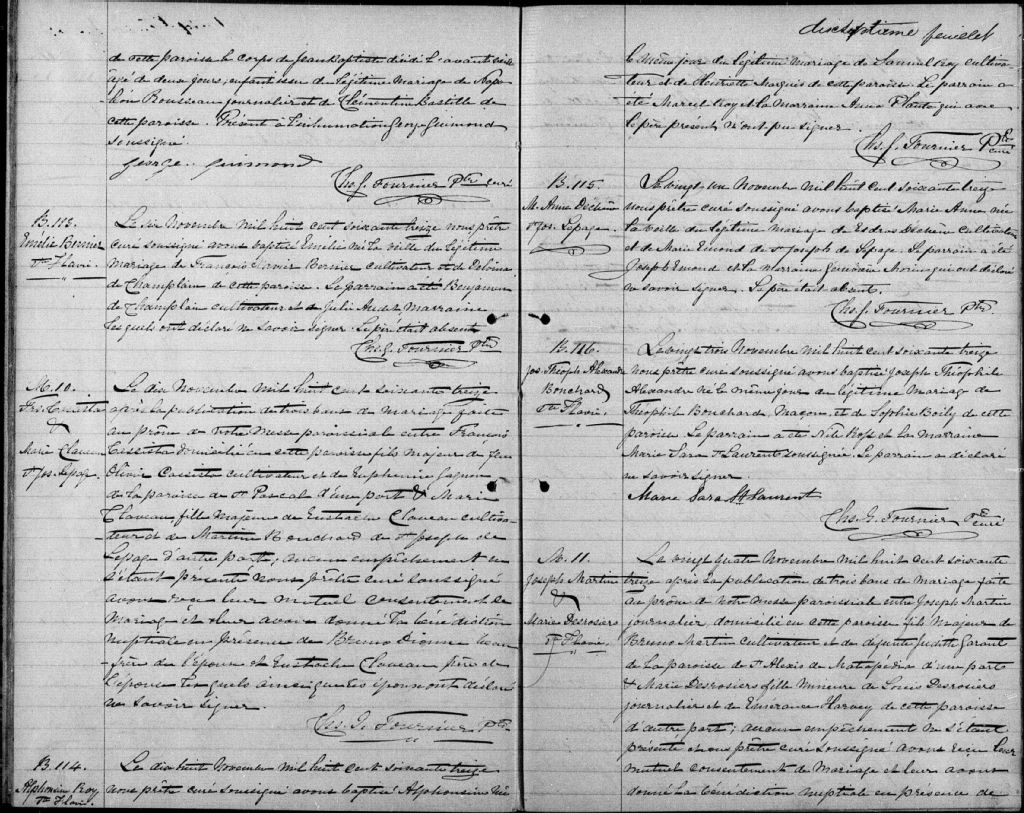 de cette paroisse le corps de Jean Baptiste décédé l'avant veille
âgé de deux jours, enfant issu de légitime mariage de Napo-
léon Rousseau journalier et de Clémentine Bastille de
cette paroisse. Présent à l'inhumation Geoy. Guimond
soussigné.
George Guimond
Chs. G. Fournier Ptre curé
B. 113.
Emélie Bernier
Ste Flavie.
Le six Novembre mil huit cent soixante treize nous prêtre
curé soussigné avons baptisé Emélie née la veille du légitime
mariage de François Xavier Bernier cultivateur et de
de Champlain de cette paroisse. Le parrain a été Benjamin
de Champlain cultivateur et de Julie Audet Marraine
lesquels ont déclaré ne savoir signer. Le père était absent
Chs. G. Fournier Ptre
M. 10.
Frs. Cassista
&
Marie Claveau
St Jos. Lepage
Le dix Novembre mil huit cent soixante treize
après la publication de trois bans de mariage faite
au prône de notre Messe paroissiale entre François
Cassista domicilié en cette paroisse fils majeur de feu
Olivier Cassista cultivateur et de Euphémie Gagnon
de la paroisse de St Pascal d'une part & Marie
Claveau, fille majeure de Eustache Claveau cultiva-
teur et de Martine Bouchard de St Joseph de
Lepage d'autre part; aucun empêchement ne
s'étant présenté nous prêtre curé soussigné
avons reçu leur mutuel consentement de
Mariage et leur avons donné la bénédiction
nuptiale en présence de Bruno Dionne beau
frère de l'époux et Eustache Claveau père de
l'épouse lesquels ainsi que les époux ont déclaré
ne savoir signer.
Chs. G. Fournier Ptre
B. 114.
Alphonsine Roy,
Ste Flavie.
Le dix huit Novembre mil huit cent soixante treize
nous prêtre curé soussigné avons baptisé Alphonsine née
dixseptième feuillet
le même jour du légitime mariage de Samuel Roy cultiva-
teur et de Henriette Marquis de cette paroisse. Le parrain a
été Marcel Roy et la Marraine Anna Plante qui avec
le père présent n'ont pu signer.
Chs. G. Fournier Ptre
curé
B. 115.
M. Anne Dechène
St Jos. Lepage
Le vingt un Novembre mil huit cent soixante treize
nous prêtre curé soussigné avons baptisé Marie Anne née
la veille du légitime mariage de Esdras Dechène Cultivateur
et de Marie Emond de St Joseph de Lepage. Le parrain a été
Joseph Emond et la Marraine qui ont déclaré
ne savoir signer. Le père était absent.
Chs. G. Fournier Ptre
B. 116.
Jos. Théoph. Alexandre
Bouchard
Ste Flavie.
Le vingt trois Novembre mil huit cent soixante treize
nous prêtre curé soussigné avons baptisé Joseph Théophile
Alexandre né le même jour du légitime mariage de
Théophile Bouchard Maçon, et de Sophie Boily de cette
paroisse. Le parrain a été Ross et la Marraine
Marie Sara St Laurent soussignée. Le parrain a déclaré
ne savoir signer
Marie Sara St Laurent
Chs. G. Fournier Ptre
curé
M. 11.
Joseph Martin
&
Marie Desrosiers
Ste Flavie.
Le vingt quatre Novembre mil huit cent soixante
treize après la publication de trois bans de mariage faite
au prône de notre messe paroissiale entre Joseph Martin
journalier, domicilié en cette paroisse fils majeur de
Bruno Martin cultivateur et de défunte Judith Garant
de la paroisse de St Alexis de Matapédia d'une part
& Marie Desrosiers fille mineure de Louis Desrosiers
journalier et de Emérance Harvey de cette paroisse
d'autre part; aucun empêchement ne s'étant
présenté nous prêtre curé soussigné avons reçu leur
mutuel consentement de Mariage et leur avons
donné la bénédiction nuptiale en présence de